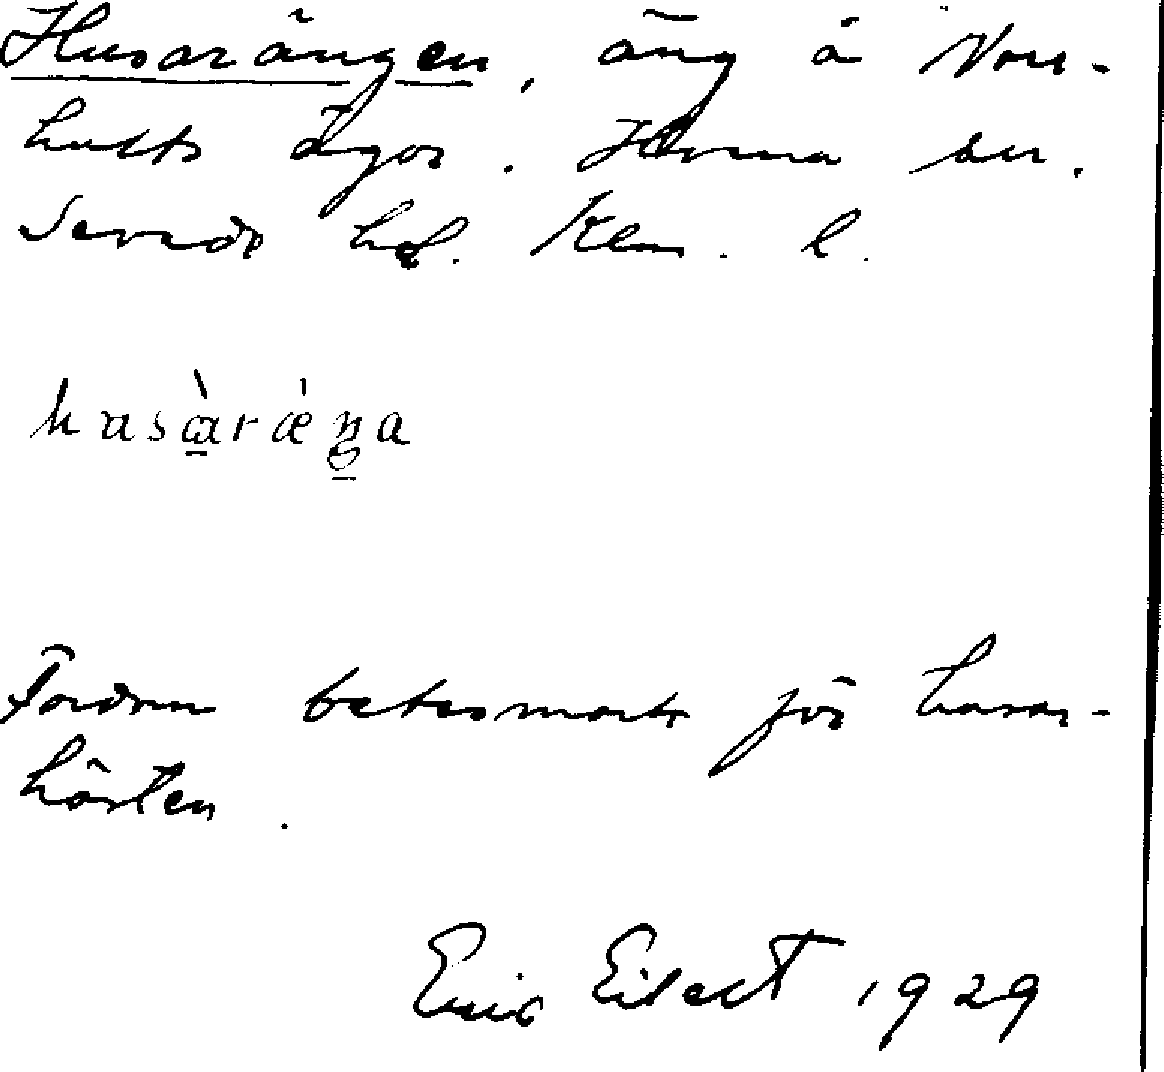 Husarängen, äng å Norr-
hults ägor. Tuna sn.
Sevede hd. Klm. l.
husàræ̀ŋa
Fordom betesmark för husar-
hästen.
Eric Eilert 1929